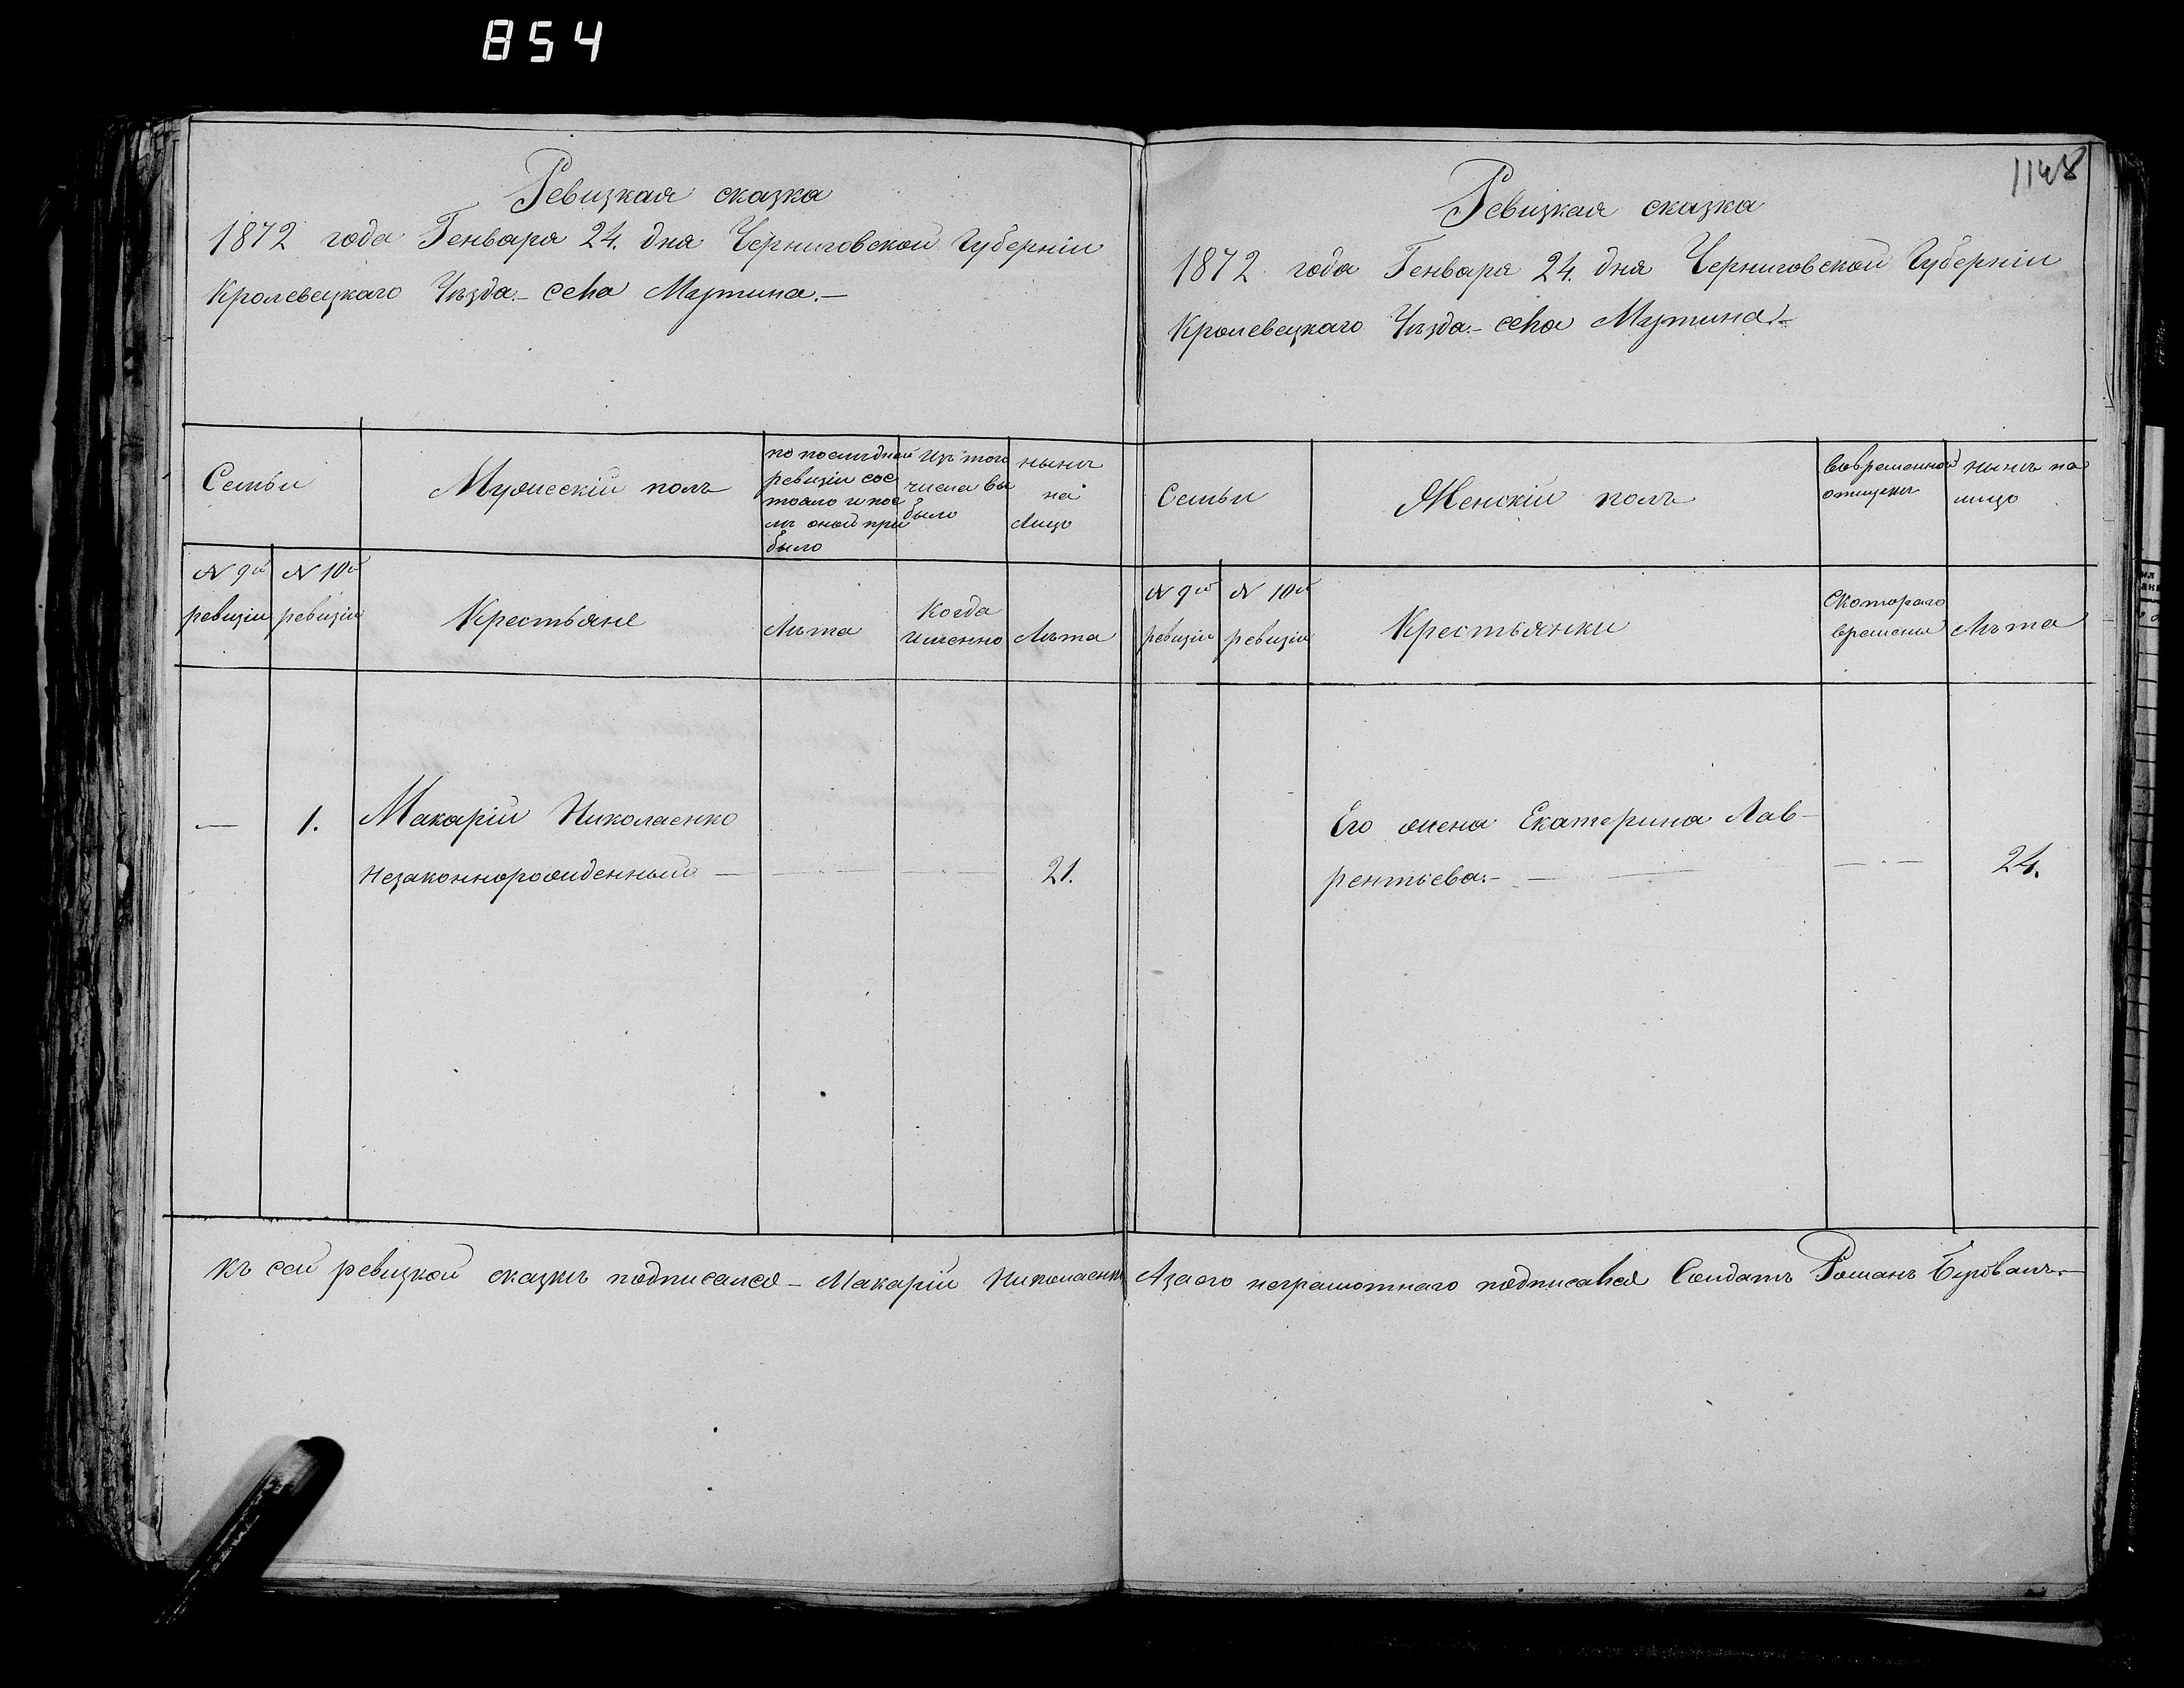 854
Ревизкая сказка
1872 года Генваря 24. дня Черниговской Губерніи
Кролевецкаго Уѣзда.- села Мутина.-
Семьи
Мужескій полъ
по послѣдней
ревизіи сос
тояло и пос
лѣ оной при
было
Изъ того
числа вы
было
нынѣ
на
лицо
N 9й
ревизіи
N 10й
ревизіи
Крестьяне
Лѣта
Когда
именно
Лѣта
—
1.
Макарій Николаенко
Незаконнорожденный —
21.
Къ сей ревизкой сказкѣ подписался - Макарій Николаенко
1148
Ревизкая сказка
1872 года Генваря 24. дня Черниговской Губерніи
Кролевецкаго Уѣзда.- села Мутина.-
Семьи
Женскій полъ
Вовременной
отлучкѣ
нынѣ на
лицо
N 9й
ревизіи
N 10й
ревизіи
Крестьянки
Скотораго
времени
Лѣта
Его жена Екатерина Лав-
рентьева.- —
24.
Азаего неграмотнаго подписался Солдатъ Романъ